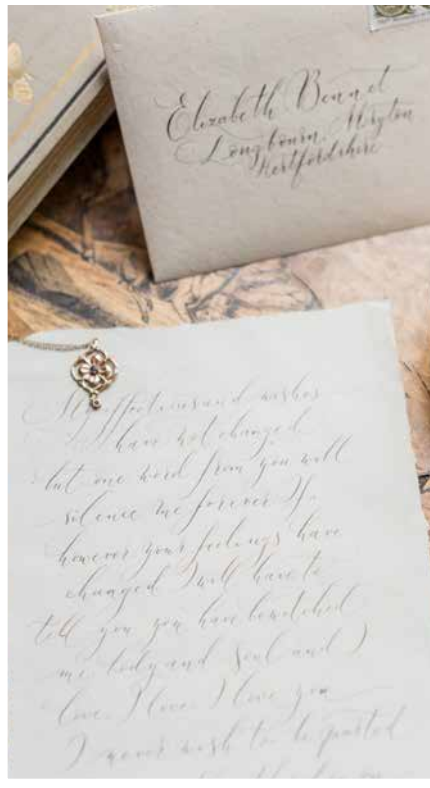 Elizabeth Bennet
Longbourn, Meryton
Hertfordshire
My affections and wishes
have not changed
but one word from you will
silence me forever If,
however your feelings have
changed I will have to
tell you you have bewitched
me body and soul and I
love, I love, I love you
I never wish to be parted